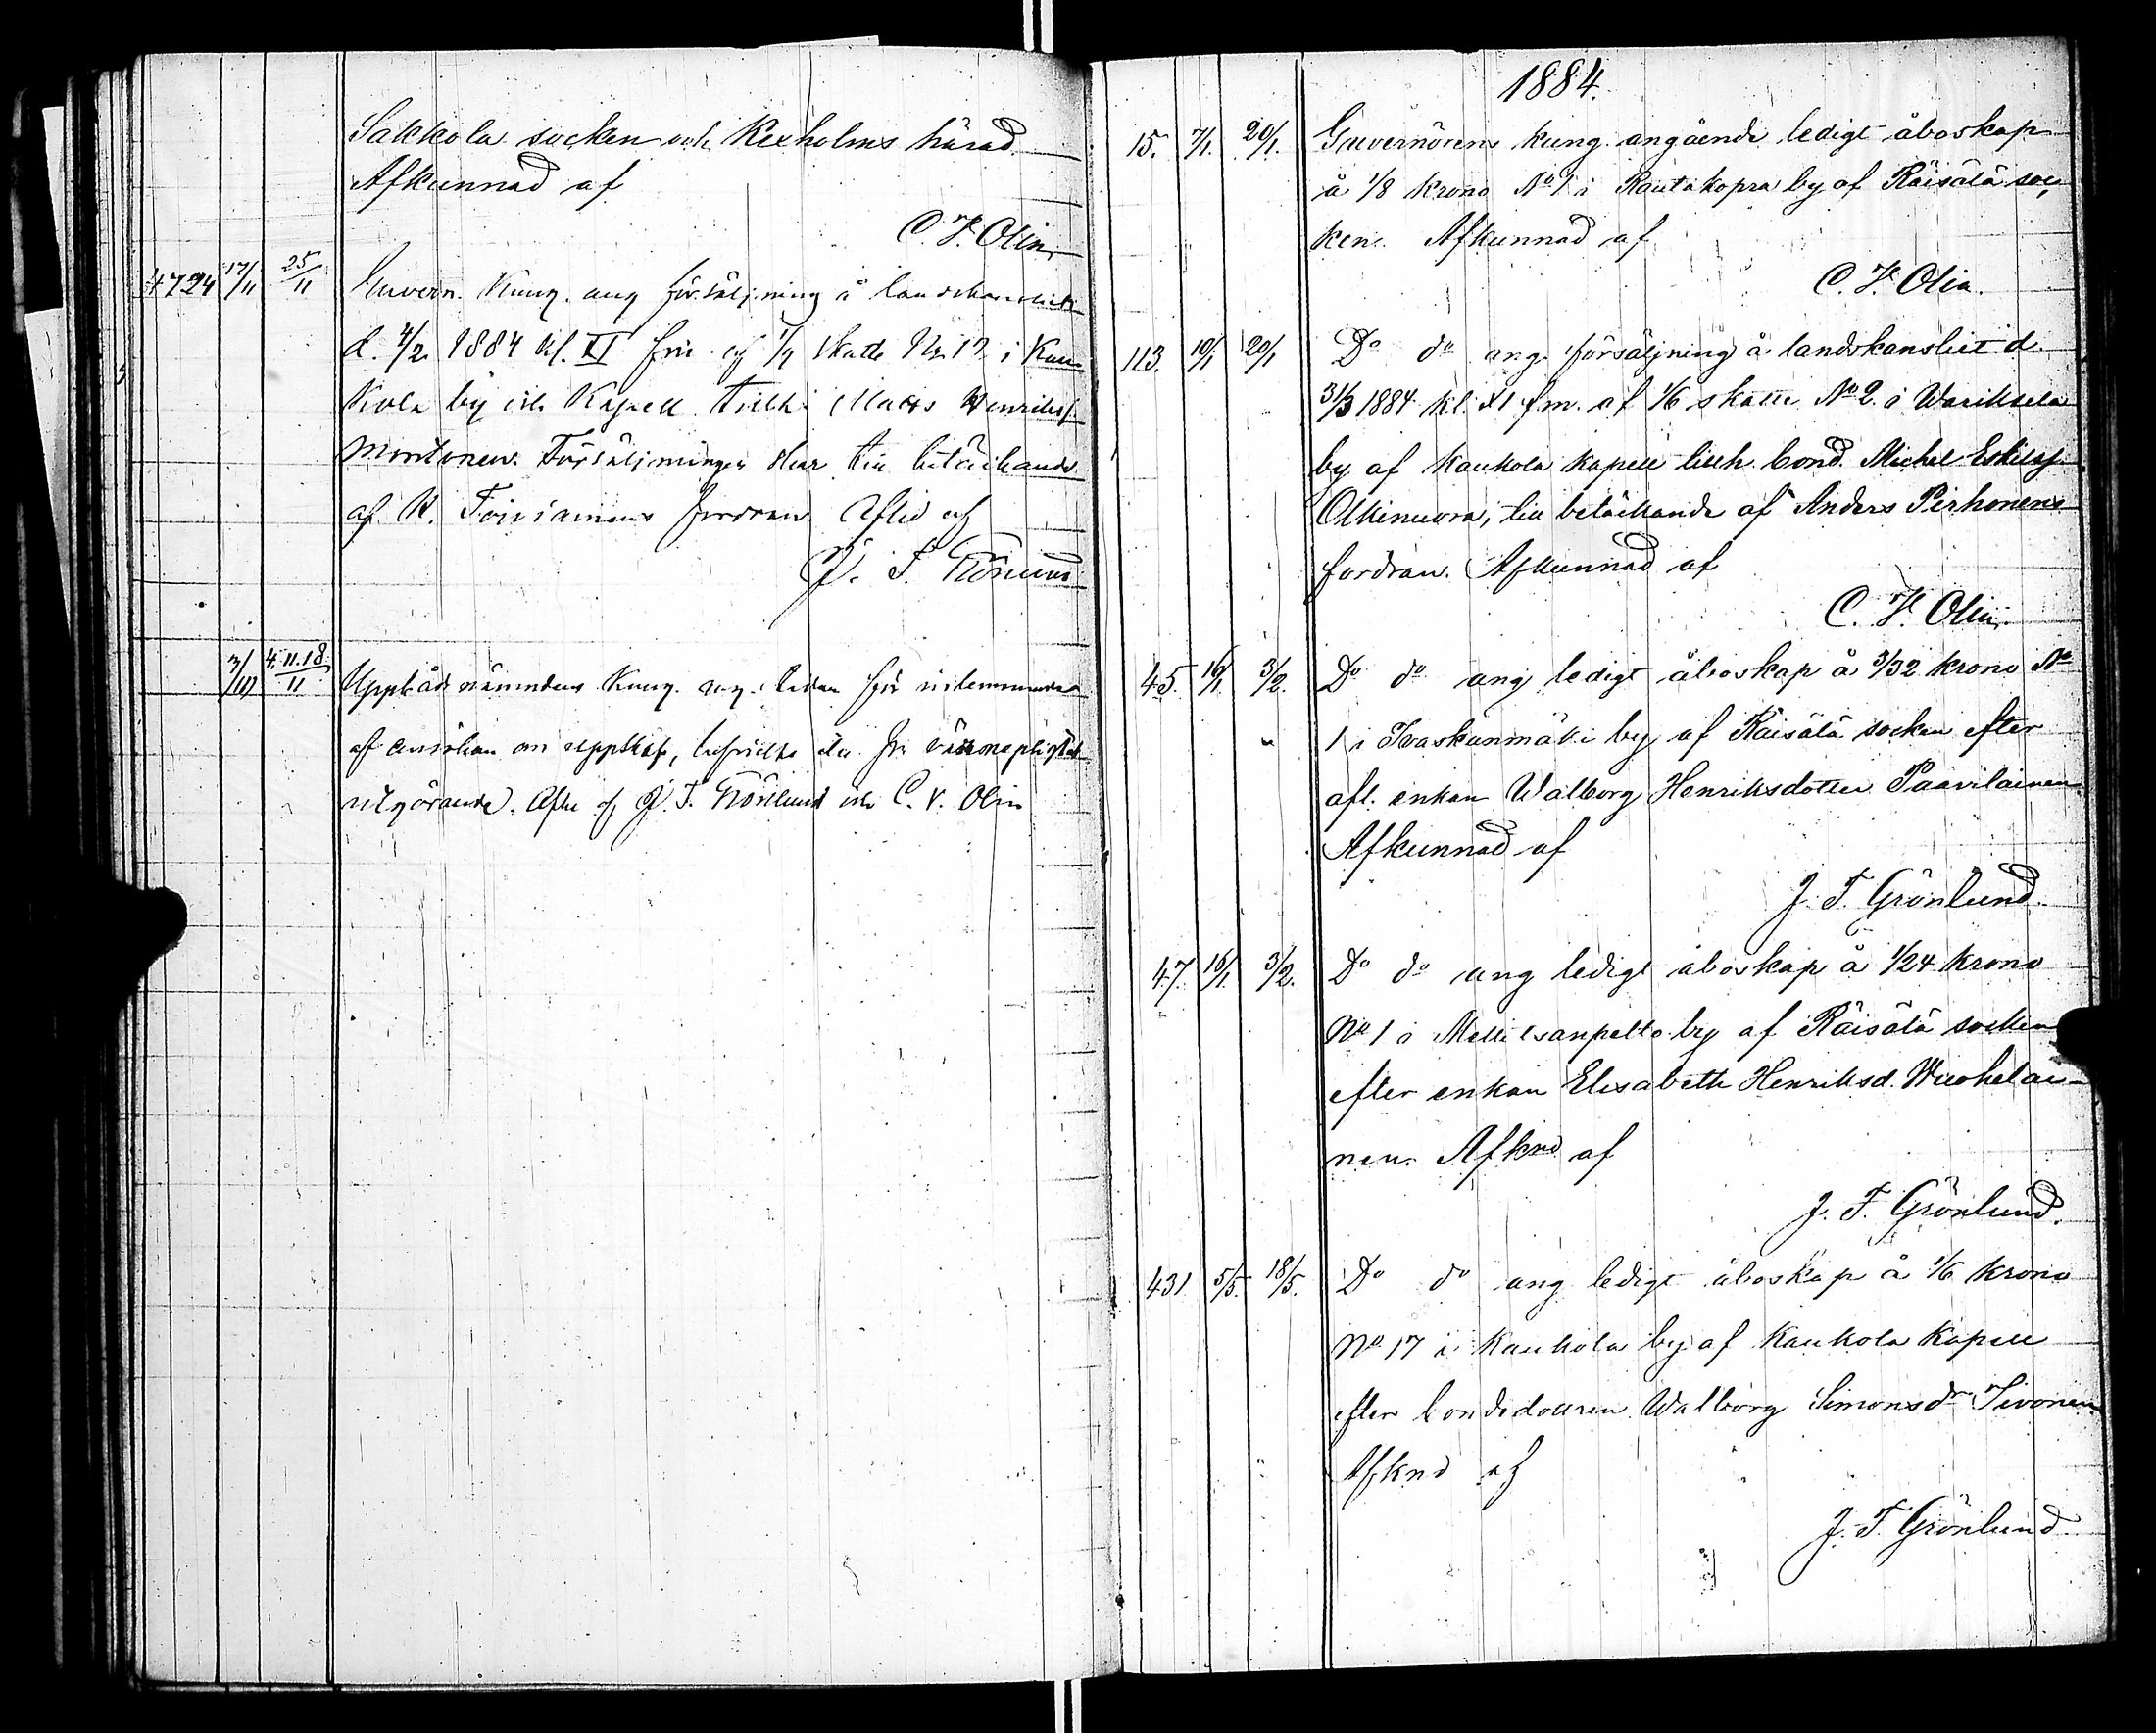 Sakkola socken och Kexholms härad
Afkunnad af
C. F. Olin
4724 17/11 25/11 Guvern. Kung. ang försäljning å landskansliet
d. 4/2 1884 kl. XI fm af 1/7 skatte No 12 i Kau
kola by och Kapell tillh. Matts Henrikss.
Montonen. Försäljningen sker till betäckande
af H. Toiviainens fordran Afkd af
J. F. Grönlund
3/10 4.11.18/11 Uppbådsnämndens Kung. ang. tiden för
af ansökan om uppskof, befrielse etc. frå värnepligtens
utgörande. Afkd af J. F. Grönlund och C. F. Olin
1884.
15. 7/1. 20/1. Guvernörens kung. angående ledigt åboskap
å 1/8 krono No 1 i Rautakopra by af Räisälä soc
ken. Afkunnad af
C. F. Olin.
113. 10/1 20/1 Do do ang. försäljning å landskansliet d.
31/3 1884 kl. XI f.m. af 1/6 skatte No 2 i Wariksela
by af Kaukola kapell tillh. bond. Michel Eskilss.
Olkinuora, till betäckande af Anders Pirhonens
fordran. Afkunnad af
C. F. Olin.
45. 16/1. 3/2. Do do ang ledigt åboskap å 3/32 krono No
1 i Ivaskanmäki by af Räisälä socken efter
afl. enkan Walborg Henriksdotter Paavilainen
Afkunnad af
J. F. Grönlund.
47. 16/1. 3/2. Do do ang ledigt åboskap å 1/24 krono
No 1 i Mellilsanpelto by af Räisälä socken
efter enkan Elisabeth Henriksd. Wuohelai-
nen. Afknd af
J. F. Grönlund.
431 5/5. 18/5. Do do ang ledigt åboskap å 1/6 krono
No 17 i Kaukola by af Kaukola Kapell
efter bondedottren Walborg Simonsdr Sivonen
Afknd af
J. F. Grönlund